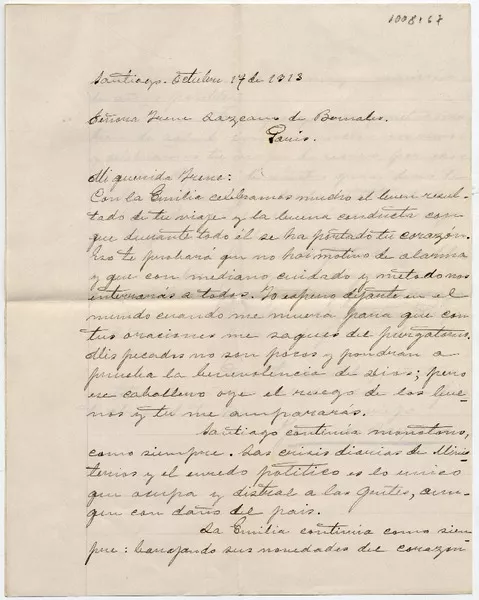 1008167
Santiago. Octubre 17 de 1913
Señora Irene Lazcano de Bernales.
Paris.
Mi querida Irene:
Con la Emilia celebramos mucho el buen resul-
tado de tu viaje y la buena conducta con
que durante todo él se ha portado tu corazón.
Eso te probará que no hai motivo de alarma
y que con mediano cuidado y método nos
enterrarás a todos. Yo espero dejarte en el
mundo cuando me muera para que con
tus oraciones me saques del purgatorio.
Mis pecados no son pocos y pondrán a
prueba la benevolencia de Dios; pero
ese caballero oye el ruego de los bue-
nos y tu me ampararás.
Santiago continúa monótono,
como siempre. Las crisis diarias de Minis
terios y el enredo político es lo único
que ocupa y distrae a las gentes, aun-
que con daño del pais.
La Emilia continúa como siem
pre: barajando sus novedades del corazón